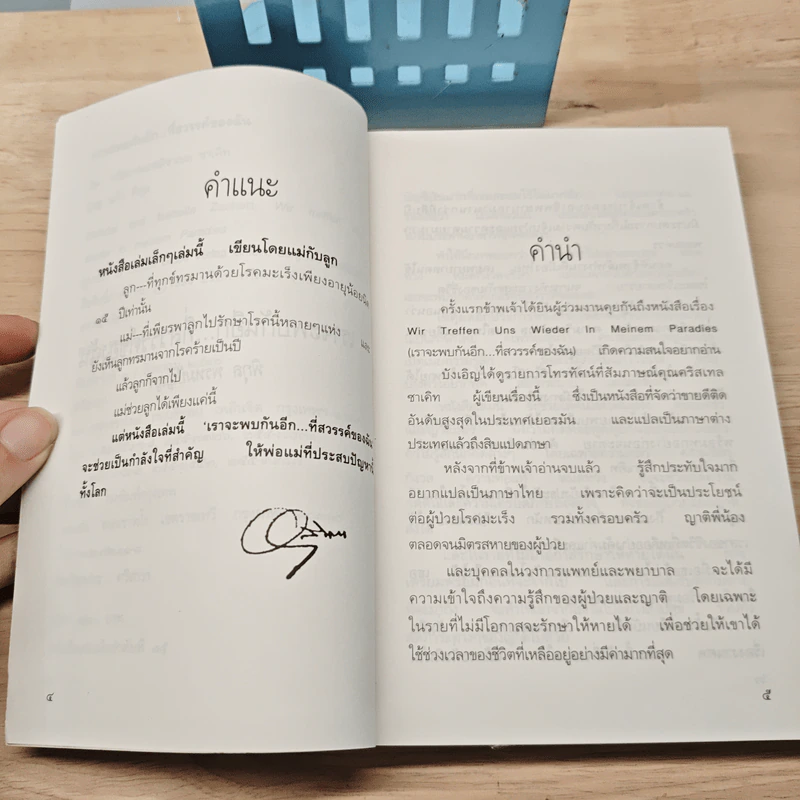 คำแนะ
หนังสือเล่มเล็กๆเล่มนี้ เขียนโดยแม่กับลูก
ลูก---ที่ทุกข์ทรมานด้วยโรคมะเร็งเพียงอายุน้อยนิด
๑๕ ปีเท่านั้น
แม่---ที่เพียรพาลูกไปรักษาโรคนี้หลายๆแห่ง และ
ยังเห็นลูกทรมานจากโรคร้ายเป็นปี
แล้วลูกก็จากไป
แม่ช่วยลูกได้เพียงแค่นี้
แต่หนังสือเล่มนี้ 'เราจะพบกันอีก...ที่สวรรค์ของฉัน'
จะช่วยเป็นกำลังใจที่สำคัญ ให้พ่อแม่ที่ประสบปัญหานี้
ทั้งโลก
๔
คำนำ
ครั้งแรกข้าพเจ้าได้ยินผู้ร่วมงานคุยกันถึงหนังสือเรื่อง
Wir Treffen Uns Wieder In Meinem Paradies
(เราจะพบกันอีก...ที่สวรรค์ของฉัน) เกิดความสนใจอยากอ่าน
บังเอิญได้ดูรายการโทรทัศน์ที่สัมภาษณ์คุณคริสเทล
ซาเคิท ผู้เขียนเรื่องนี้ ซึ่งเป็นหนังสือที่จัดว่าขายดีติด
อันดับสูงสุดในประเทศเยอรมัน และแปลเป็นภาษาต่าง
ประเทศแล้วถึงสิบแปดภาษา
หลังจากที่ข้าพเจ้าอ่านจบแล้ว รู้สึกประทับใจมาก
อยากแปลเป็นภาษาไทย เพราะคิดว่าจะเป็นประโยชน์
ต่อผู้ป่วยโรคมะเร็ง รวมทั้งครอบครัว ญาติพี่น้อง
ตลอดจนมิตรสหายของผู้ป่วย
และบุคคลในวงการแพทย์และพยาบาล จะได้มี
ความเข้าใจถึงความรู้สึกของผู้ป่วยและญาติ โดยเฉพาะ
ในรายที่ไม่มีโอกาสจะรักษาให้หายได้ เพื่อช่วยให้เขาได้
ใช้ช่วงเวลาของชีวิตที่เหลืออยู่อย่างมีค่ามากที่สุด
๕